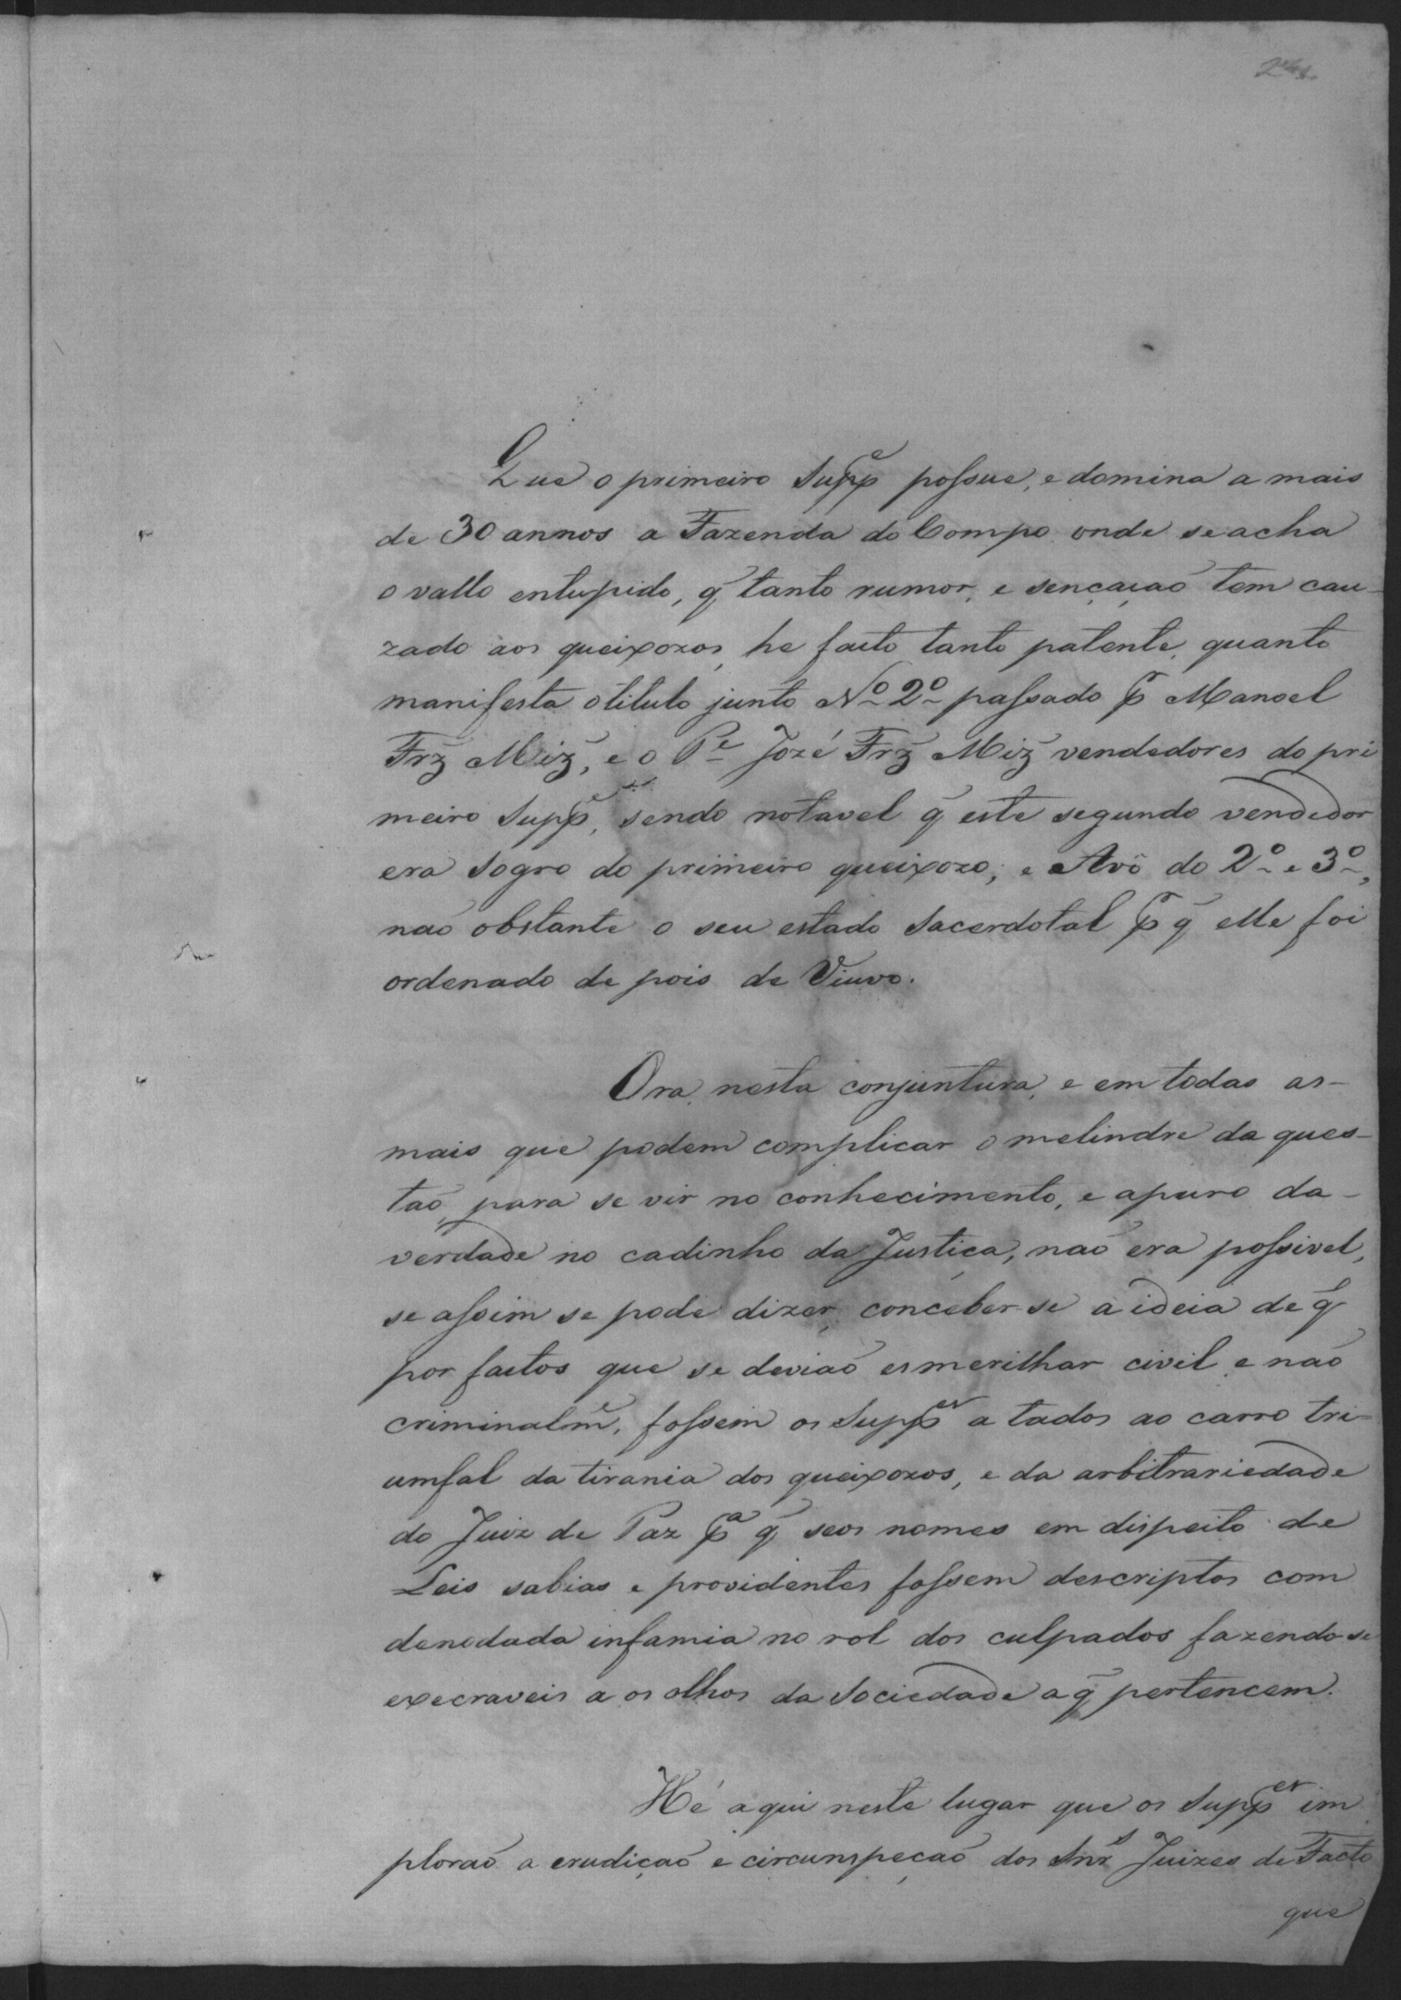 Que o primeiro Supp.e possue, e domina a mais
de 30 annos a Fazenda do Compo onde se acha
o vallo entupido, q̃ tanto rumor, e sençaçaõ tem cau-
zado aos queixozos, he facto tanto patente, quanto
manifesta o titulo junto Nº 2º passado p.r Manoel
Frz̃ Miz̃, e o P.e Jozé Frz̃ Miz̃ vendedores do pri
meiro Supp.e, sendo notavel q̃ este segundo vendedor
era sogro do primeiro queixozo, e Avô do 2º e 3º,
naõ obstante o seu estado Sacerdotal p.r q̃ elle foi
ordenado de pois de Viuvo.
Ora, nesta conjuntura, e em todas as-
mais que podem complicar o melindre da ques-
taõ, para se vir no conhecimento, e apuro da-
verdade no cadinho da Justiça, naõ era possivel,
se assim se pode dizer, conceber-se a ideia de q̃
por factos que se deviaõ esmerilhar civil, e naõ
criminalm.e, fossem os Supp.es a tados ao carro tri-
umfal da tirania dos queixozos, e da arbitrariedade
do Juiz de Paz p.a q̃ seos nomes em dispeito de
Leis sabias e providentes fossem descriptos com
denodada infamia no rol dos culpados fazendo-se
execraveis a os olhos da Sociedade a q̃ pertencem.
Hé aqui neste lugar que os Supp.es im
ploraõ a erudiçaõ e circunspeçaõ dos Snr.s Juizes de Facto
que